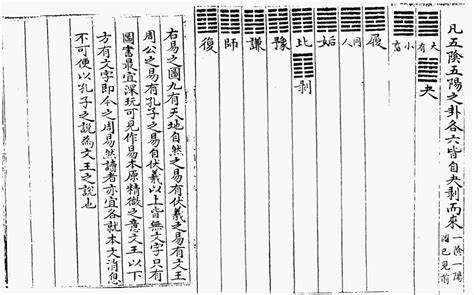 凡五陰五陽之卦各六皆自夬剥而來一陰一陽圖已見前
大有 夬
小畜
履
同人
姤
比 剥
豫
謙
師
復
右易之圖九有天地自然之易有伏羲之易有文王
周公之易有孔子之易自伏羲以上皆無文字只有
圖書最宜深玩可見作易本原精微之意文王以下
方有文字即今之周易然讀者亦宜各就本文消息
不可便以孔子之說為文王之說也